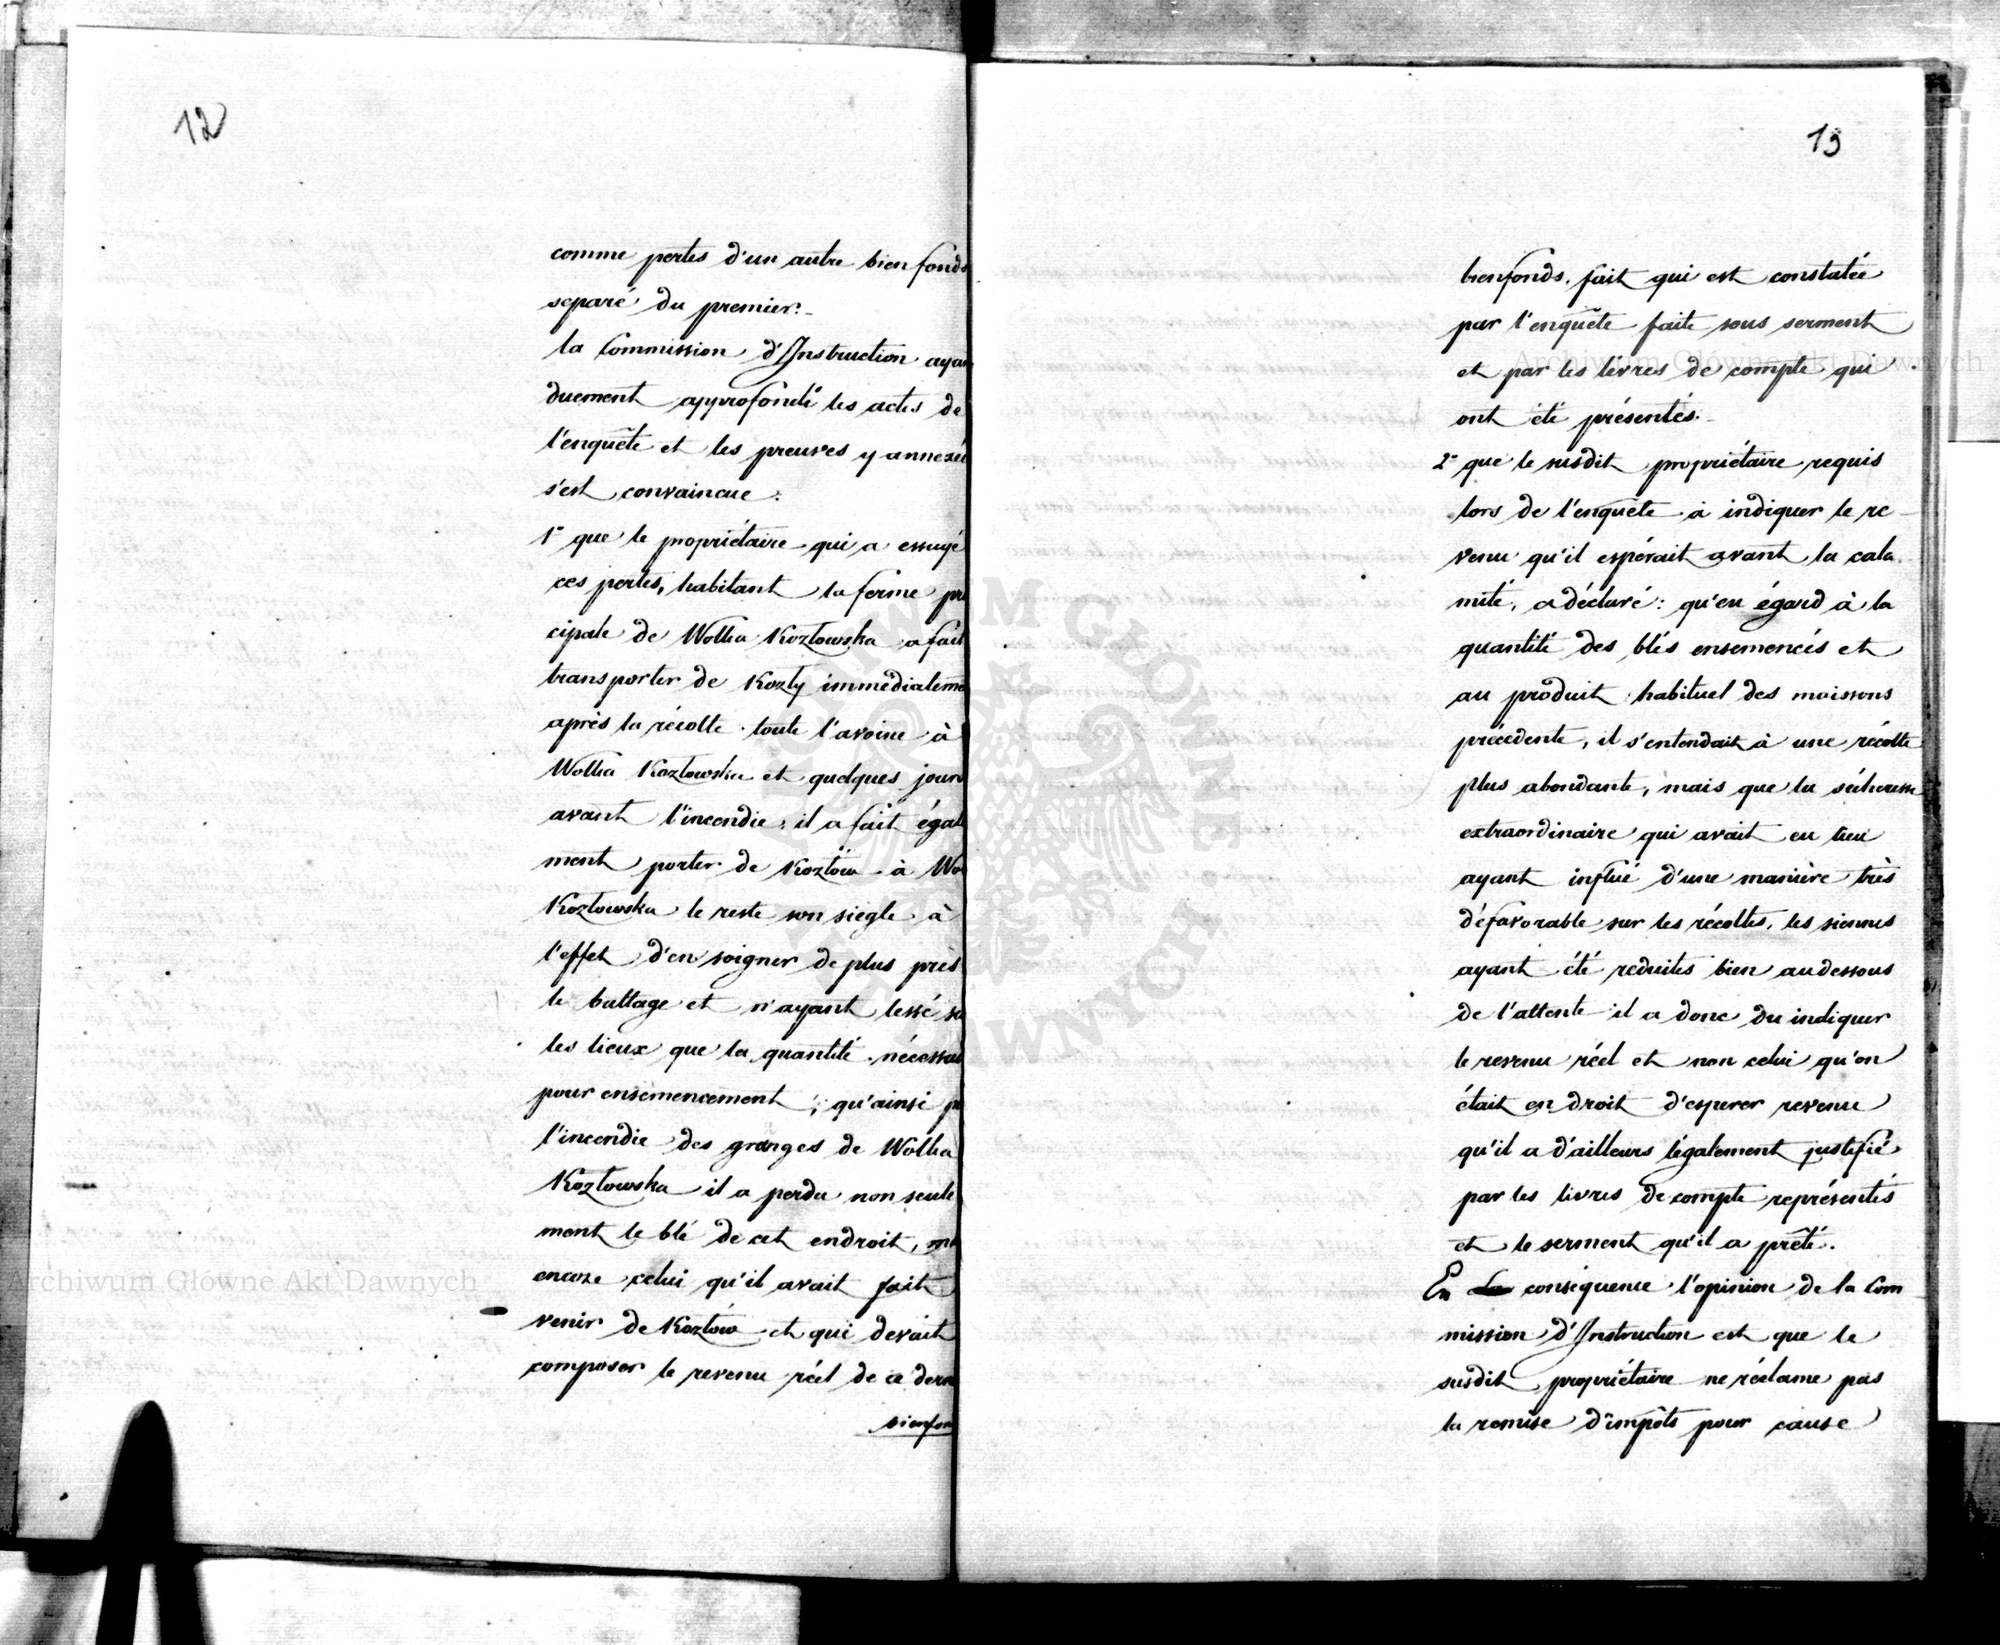 12
comme pertes d'un autre bien fonds
separé du premier.
la Commission d'Instruction ayan
duement approfondi les actes de
l'enquête et les preuves y annexée
s'est convaincue:
1° que le propriétaire qui a essuyé
ces pertes, habitant la ferme pr
cipale de Wolka Kozłowska a fait
transporter de Kozły immédiateme
après la récolte toute l'avoine à
Wolka Kozłowska et quelques jours
avant l'incendie, il a fait égale
ment porter de Kozłów à Wol
Kozłowska le reste son siegle à
l'effet d'en soigner de plus près
le battage et n'ayant lessé su
les lieux que la quantité nécessai
pour ensemencement; qu'ainsi p
l'incendie des granges de Wolka
Kozłowska il a perdu non seule
ment le blé de cet endroit, m
encore celui qu'il avait fait
venir de Kozłów et qui devait
composer le revenu réel de ce derni
bienfon
13
bienfonds, fait qui est constatée
par l'enquête faite sous serment
et par les livres de compte qui
ont été présentés.
2° que le susdit propriétaire requis
lors de l'enquête à indiquer le re
venu qu'il espérait avant la cala
mité, a déclaré: qu'eu égard à la
quantité des blés ensemencés et
au produit habituel des moissons
précédente, il s'entendait à une récolte
plus abondante, mais que la sécheresse
extraordinaire qui avait eu lieu
ayant influé d'une manière très
défavorable sur les récoltes, les siennes
ayant été reduites bien audessous
de l'attente il a donc du indiquer
le revenu réel et non celui qu'on
était en droit d'esperer revenu
qu'il a d'ailleurs légalement justifié
par les livres de compte représentés
et le serment qu'il a prêté.
En conséquence l'opinion de la Com
mission d'Instruction est que le
susdit propriétaire ne réclame pas
la remise d'impôts pour cause
Archiwum Główne Akt Dawnych
Archiwum Główne Akt Dawnych
ARCHIWUM GŁÓWNE AKT DAWNYCH